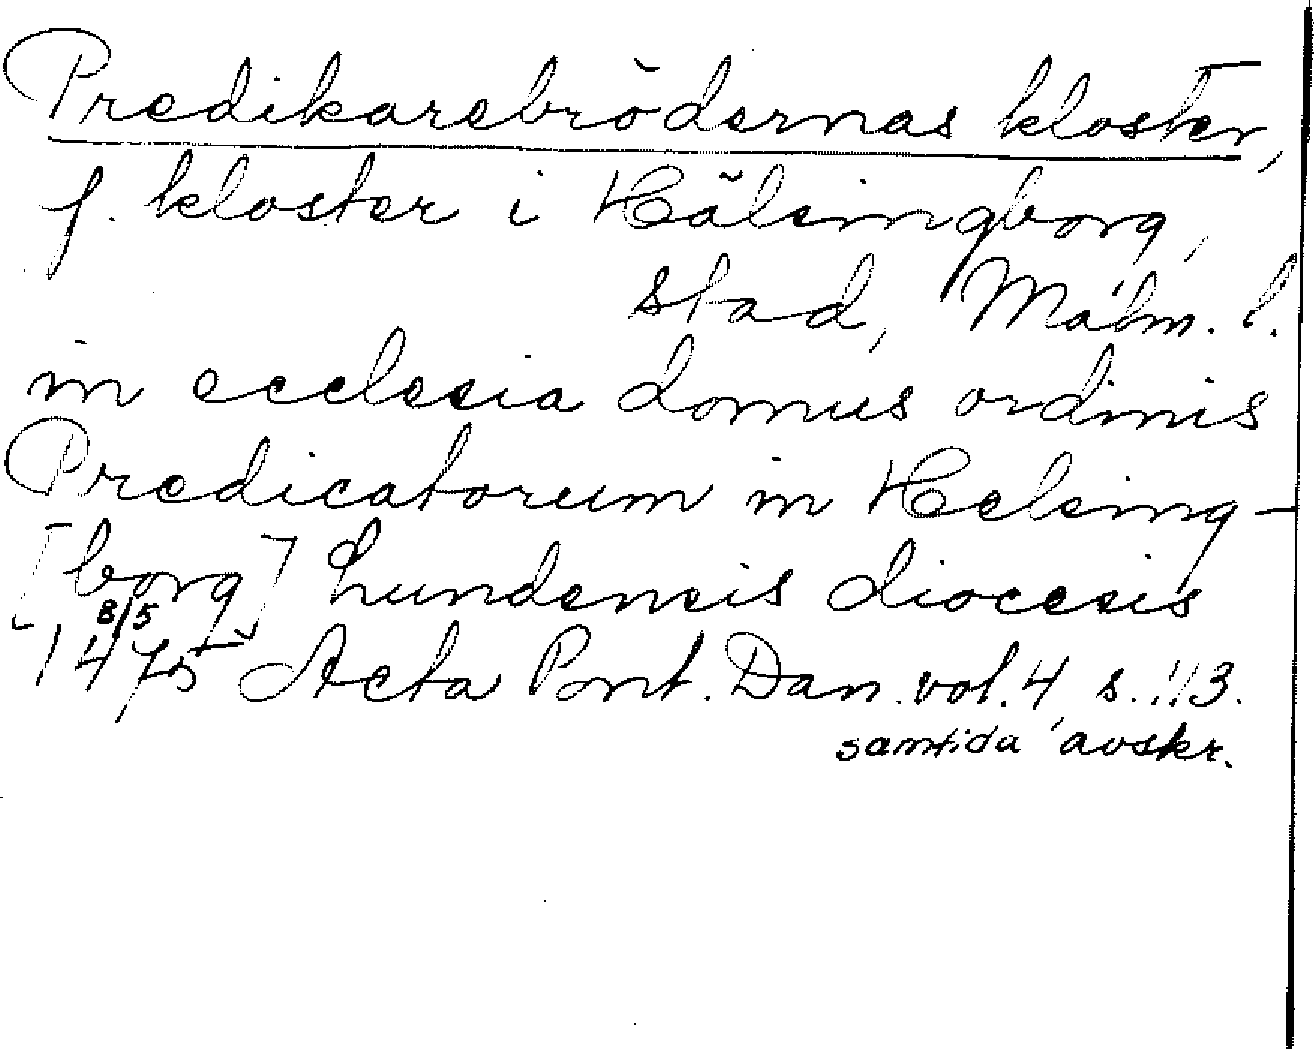 Predikarebrödernas kloster,
f. kloster i Hälsingborg,
stad, Malm. l.
in ecclesia domus ordinis
Predicatorum in Helsing-
[borg] Lundensis diocesis
8/5
1475 Acta Pont. Dan. vol. 4 s. 113.
samtida avskr.